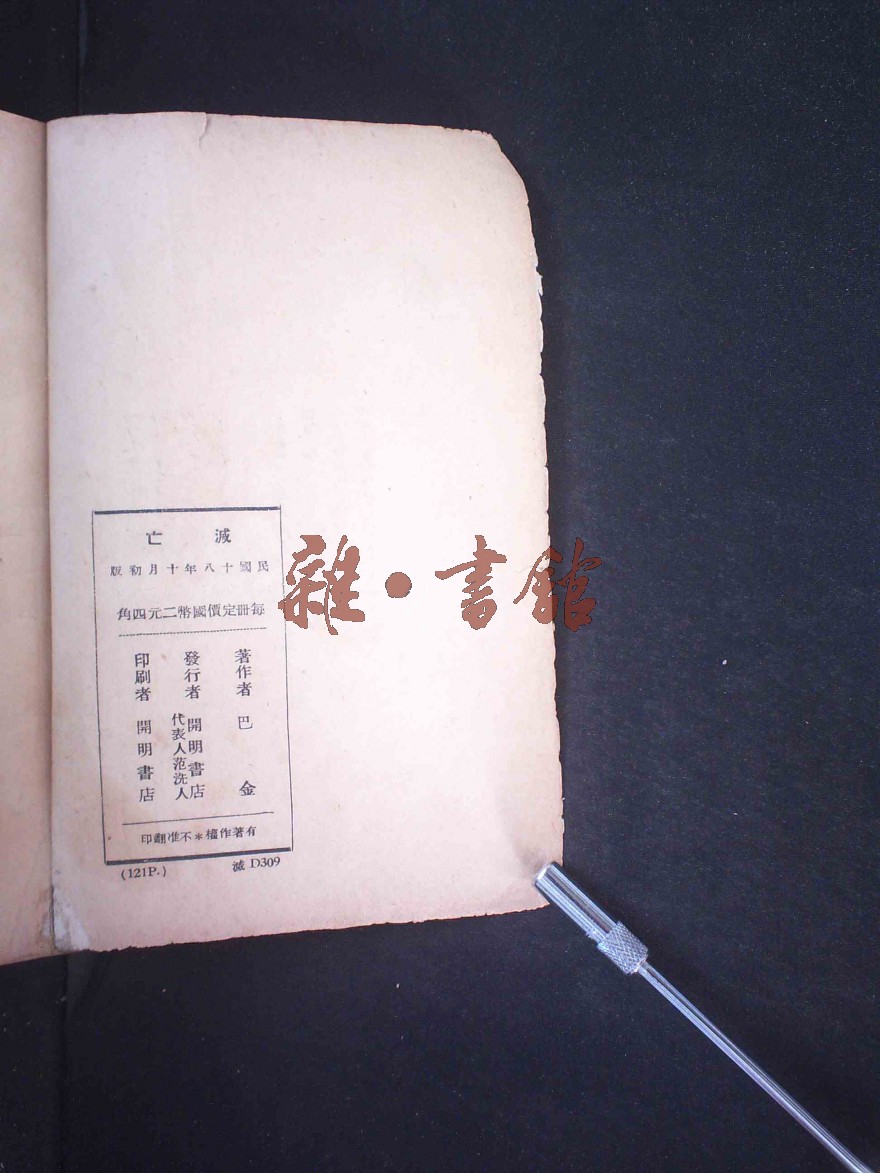 滅亡
民國十八年十月初版
每冊定價國幣二元四角
著作者 巴金
發行者 開明書店
代表人范洗人
印刷者 開明書店
有著作權＊不准翻印
(121P.) 滅 D309
雜·書館